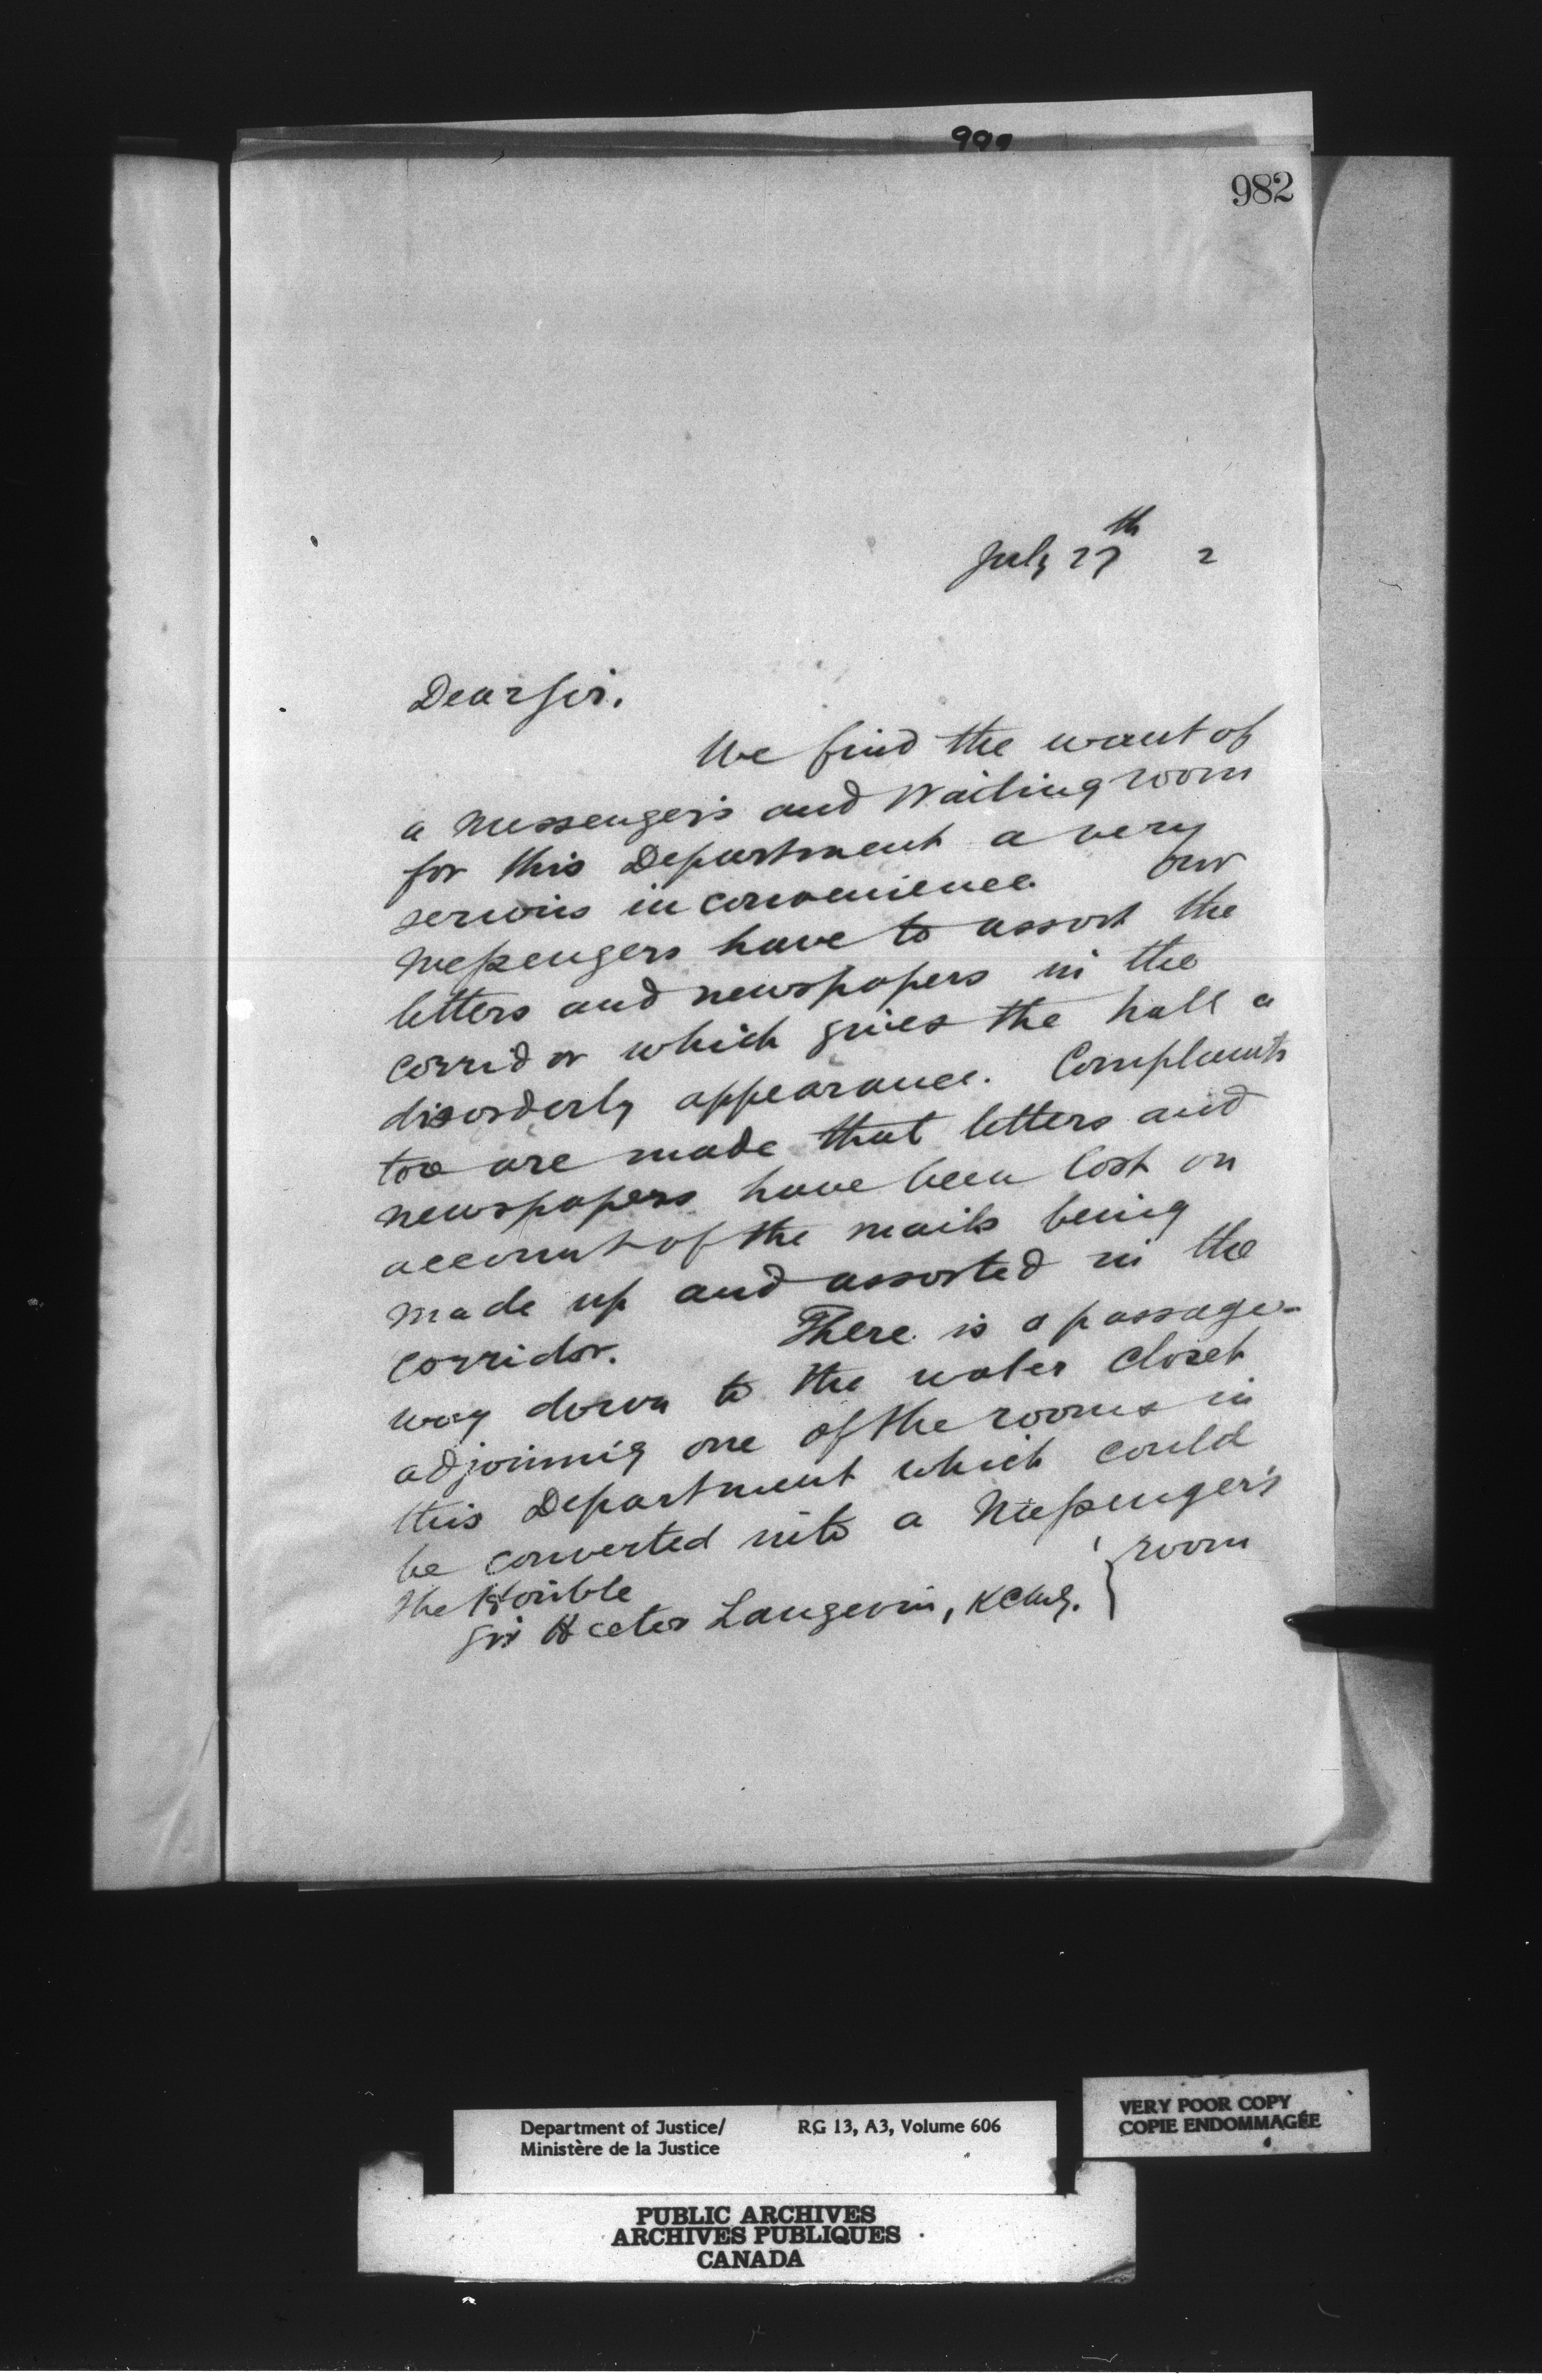 990
982
July 27th 2
Dear Sir.
We find the want of
a Messenger's and Waiting room
for this Department a very
serious inconvenience. Our
Messengers have to assort the
letters and newspapers in the
corridor which gives the hall a
disorderly appearance. Complaints
too are made that letters and
newspapers have been lost on
account of the mails being
made up and assorted in the
corridor. There is a passage-
way down to the water closet
adjoining one of the rooms in
this Department which could
be converted into a Messenger's
room
The Honble
Sir Hector Langevin, KCMG.
Department of Justice/ RG 13, A3, Volume 606
Ministère de la Justice
VERY POOR COPY
COPIE ENDOMMAGÉE
PUBLIC ARCHIVES
ARCHIVES PUBLIQUES
CANADA